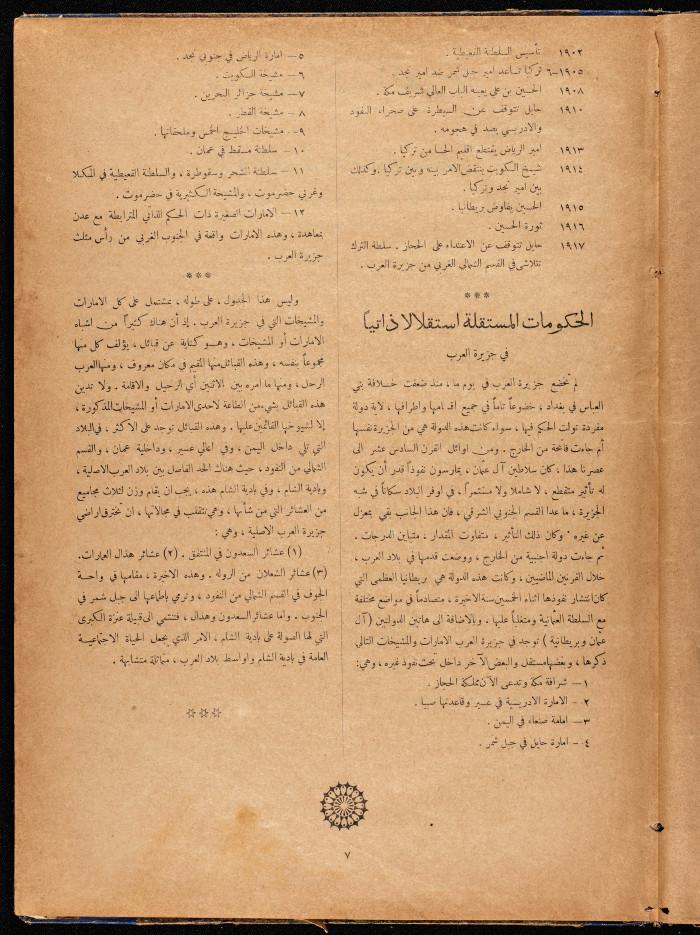 ١٩٠٢ تأسيس السلطنة القعيطية .
١٩٠٥-٦ تركيا تساعد امير جبل شمر ضد امير نجد .
١٩٠٨ الحسين بن علي يعينه الباب العالي شريف مكة .
١٩١٠ حايل تتوقف عن السيطرة على صحراء النفود
والادريسي يصد في هجومه .
١٩١٣ امير الرياض يقتطع اقليم الحسا من تركيا .
١٩١٤ شيخ الكويت ينتقض الامر بينه وبين تركيا . وكذلك
بين امير نجد وتركيا .
١٩١٥ الحسين يفاوض بريطانيا .
١٩١٦ ثورة الحسين .
١٩١٧ حايل تتوقف عن الاعتداء على الحجاز . سلطة الترك
تتلاشى في القسم الشمالي الغربي من جزيرة العرب .
***
الحكومات المستقلة استقلالا ذاتياً
في جزيرة العرب
لم تخضع جزيرة العرب في يوم ما ، منذ ضعفت خلافة بني
العباس في بغداد ، خضوعاً تاماً في جميع اقسامها واطرافها ، لاية دولة
مفردة تولت الحكم فيها ، سواء كانت هذه الدولة هي من الجزيرة نفسها
أم جاءت فاتحة من الخارج . ومن اوائل القرن السادس عشر الى
عصرنا هذا ، كان سلاطين آل عثمان ، يمارسون نفوذاً قدر أن يكون
له تأثير متقطع ، لا شاملا ولا مستمراً ، في اوفر البلاد سكاناً في شبه
الجزيرة ، ما عدا القسم الجنوبي الشرقي ، فان هذا الجانب بقي بمعزل
عن غيره . وكان ذلك التأثير ، متفاوت المقدار ، متباين الدرجات .
ثم جاءت دولة اجنبية من الخارج ، ووضعت قدمها في بلاد العرب ،
خلال القرنين الماضيين ، وكانت هذه الدولة هي بريطانيا العظمى التي
كان انتشار نفوذها اثناء الخمسين سنة الاخيرة ، متصادماً في مواضع مختلفة
مع السلطة العثمانية ومتغلباً عليها . وبالاضافة الى هاتين الدولتين ( آل
عثمان وبريطانية ) توجد في جزيرة العرب الامارات والمشيخات التالي
ذكرها ، وبعضها مستقل والبعض الآخر داخل تحت نفوذ غيره ، وهي :
١ – شرافة مكة وتدعى الآن مملكة الحجاز .
٢ – الامارة الادريسية في عسير وقاعدتها صبيا .
٣ – امامة صنعاء في اليمن .
٤ – امارة حايل في جبل شمر .
٥ – امارة الرياض في جنوبي نجد .
٦ – مشيخة الكويت .
٧ – مشيخة جزائر البحرين .
٨ – مشيخة القطر .
٩ – مشيخات الخليج الخمس وملحقاتها .
١٠ – سلطنة مسقط في عمان .
١١ – سلطنة الشحر وسقوطرة ، والسلطنة القعيطية في المكلا
وغربي حضرموت ، والمشيخة الكثيرية في حضرموت .
١٢ – الامارات الصغيرة ذات الحكم الذاتي المترابطة مع عدن
بمعاهدة ، وهذه الامارات واقعة في الجنوب الغربي من رأس مثلث
جزيرة العرب .
***
وليس هذا الجدول ، على طوله ، بمشتمل على كل الامارات
والمشيخات التي في جزيرة العرب . إذ أن هناك كثيراً من اشباه
الامارات أو المشيخات ، وهو كناية عن قبائل ، يؤلف كل منها
مجموعاً بنفسه ، وهذه القبائل منها المقيم في مكان معروف ، ومنها العرب
الرحل ، ومنها ما امره بين الاثنين أي الرحيل والاقامة . ولا تدين
هذه القبائل بشيء من الطاعة لاحدى الامارات أو المشيخات المذكورة ،
إلا لشيوخها القائمين عليها . وهذه القبائل توجد على الاكثر ، في البلاد
التي تلي داخل اليمن ، وفي اعالي عسير ، وداخلية عمان ، والقسم
الشمالي من النفود ، حيث هناك الحد الفاصل بين بلاد العرب الاصلية ،
وبادية الشام ، وفي بادية الشام هذه ، يجب ان يقام وزن لثلاث مجاميع
من العشائر التي من شأنها ، وهي تتقلب في مجالاتها ، ان تخترق اراضي
جزيرة العرب الاصلية ، وهي :
(١) عشائر السعدون في المنتفق . (٢) عشائر هذال العمارات .
(٣) عشائر الشعلان من الروله . وهذه الاخيرة ، مقامها في واحة
الجوف في القسم الشمالي من النفود ، وترمي باطماعها الى جبل شمر في
الجنوب . واما عشائر السعدون وهذال ، فتنتمي الى قبيلة عنزة الكبرى
التي لها الصولة على بادية الشام ، الامر الذي يجعل الحياة الاجتماعية
العامة في بادية الشام واواسط بلاد العرب ، متماثلة متشابهة .
***
٧